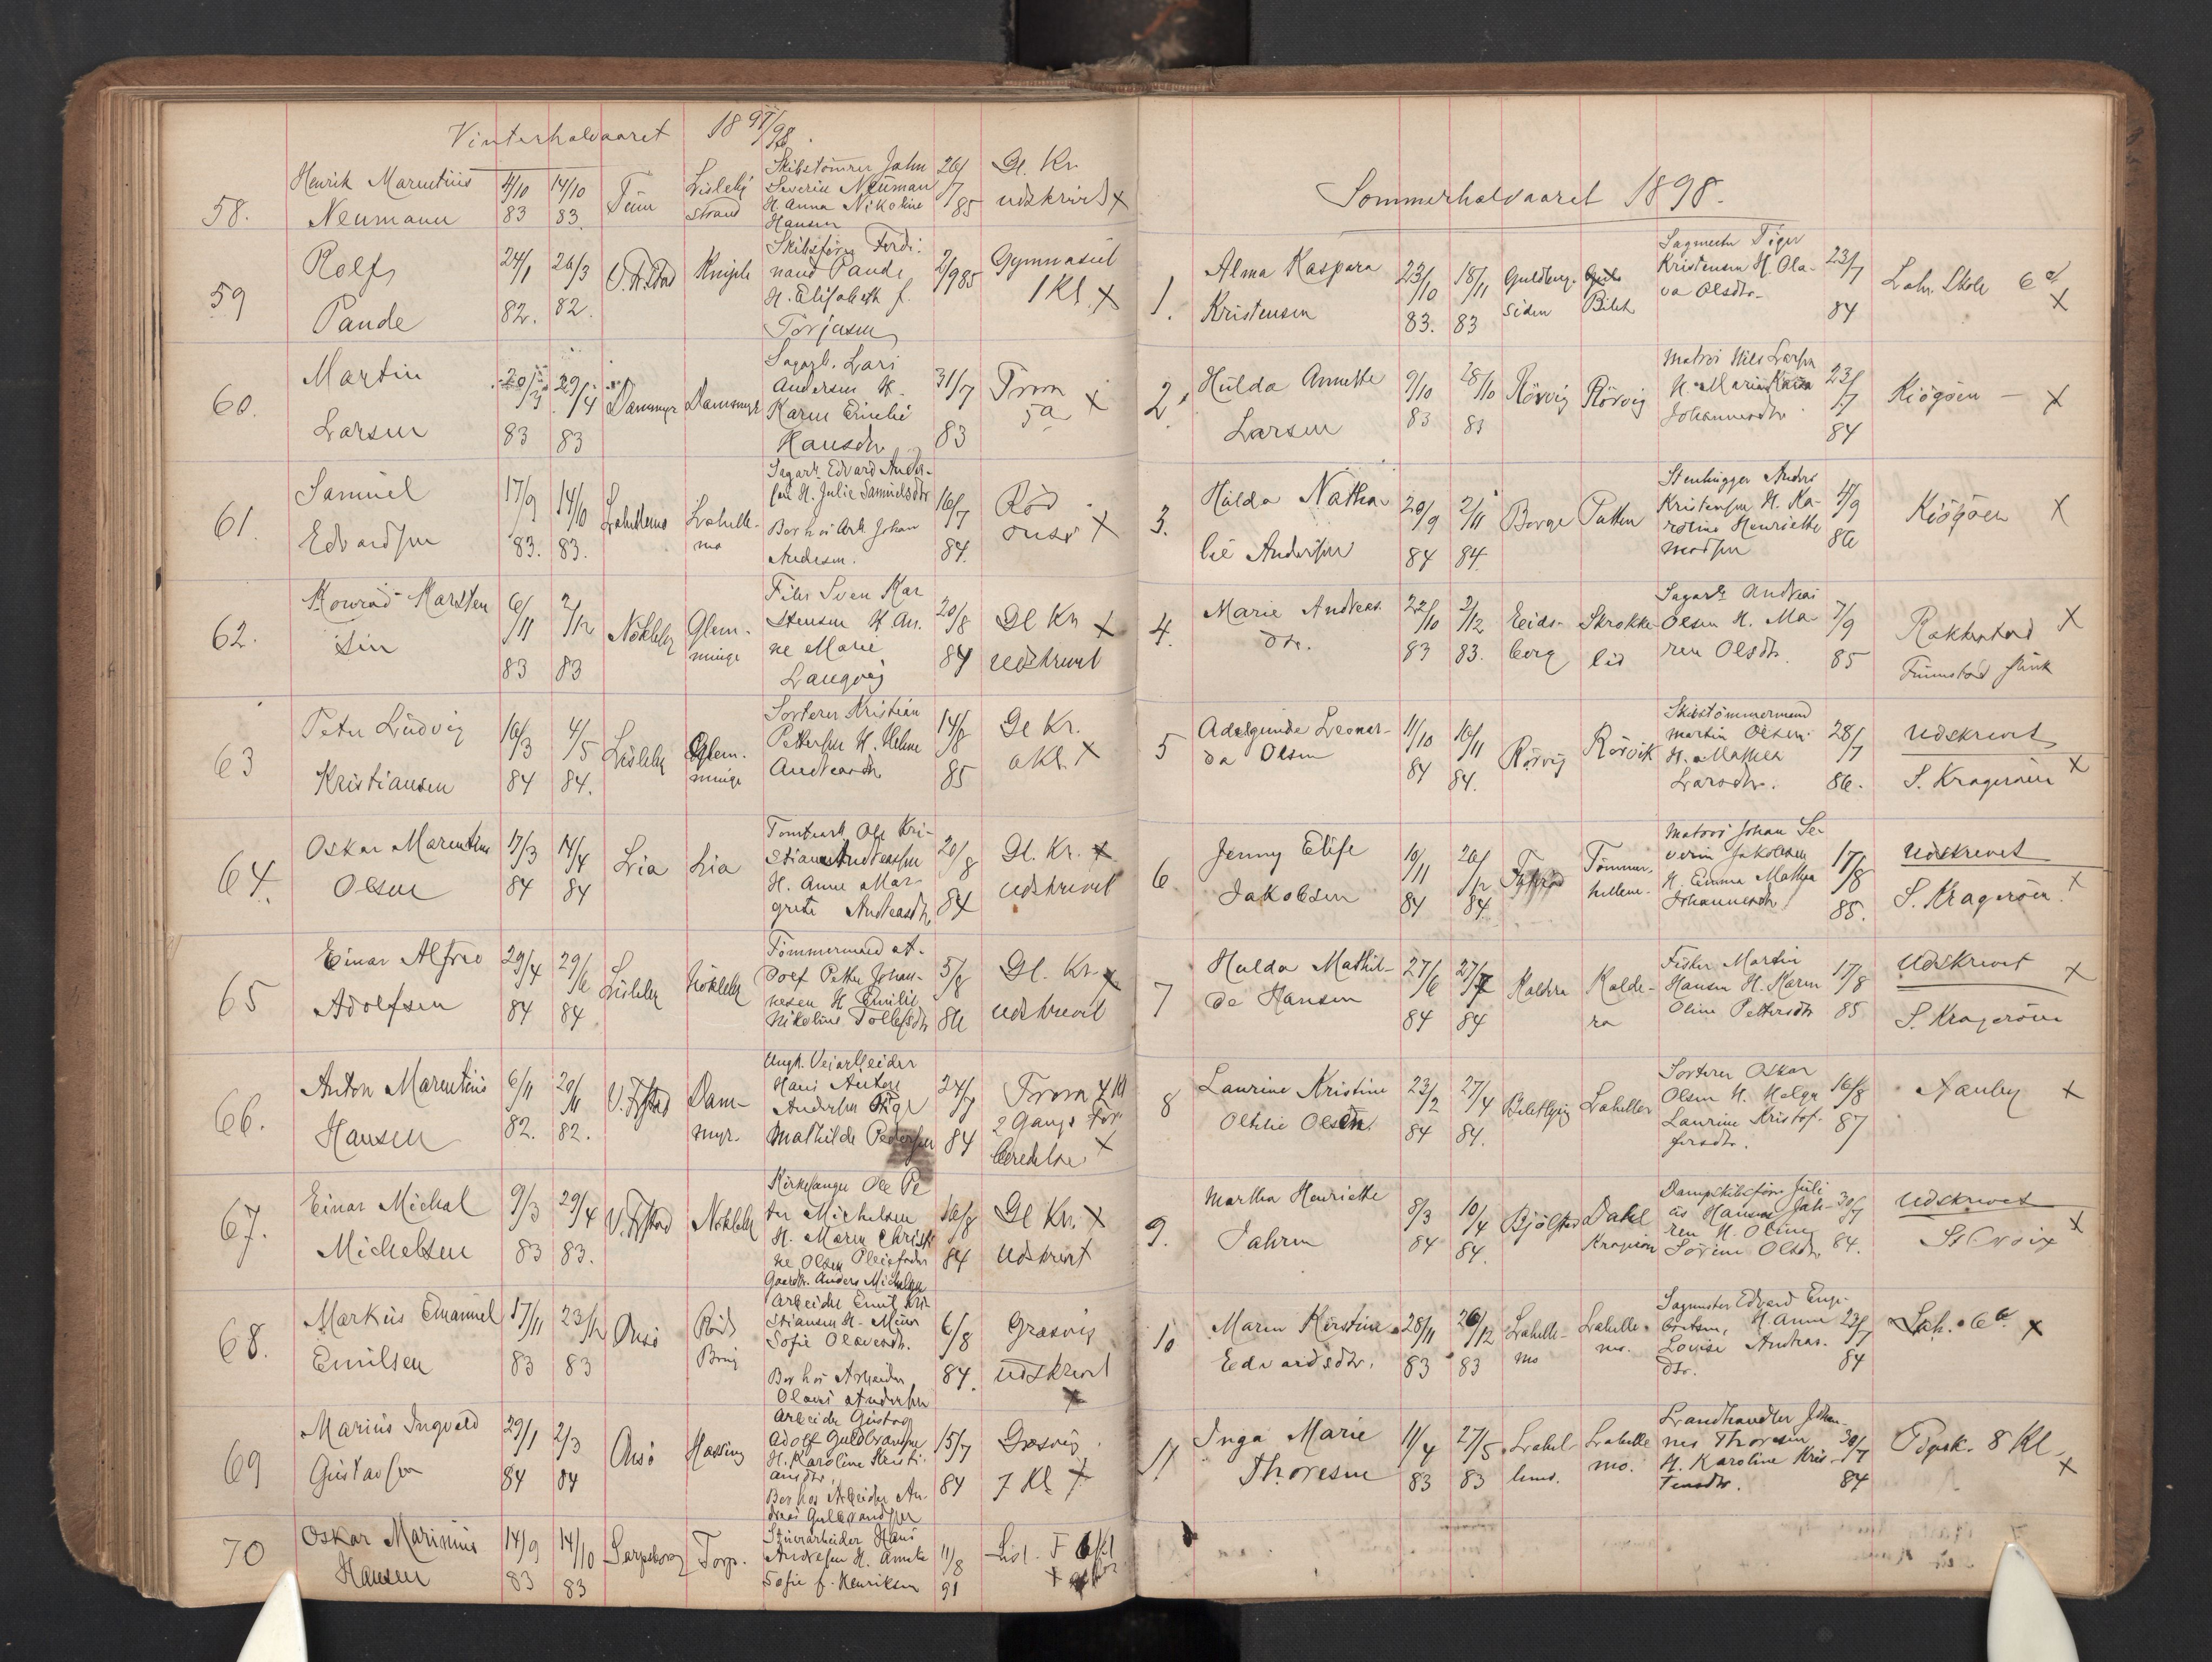 Vinterhalvaaret 1897/98.
58. Henrik Marentius Neumann 4/10 83 14/10 83. Tune Lisleby strand
Skibstømrer Johan
Severin Neuman
H. Anna Nikoline
Hansen
26/7 85 Gl. Kr. udskrivt x
59 Rolf Pande 24/1 82. 26/3 82. V. Fr.stad Kniple
Skibsfører Ferdi-
nand Pande
H. Elisabeth f.
Torjusen
2/9 85 Gymnasiet 1 Kl. x
60. Martin Larsen 20/3 83 29/4 83 Dammyr Dammyr
Sagarb. Lars
Andersen H.
Karen Emelie
Hansdtr
31/7 83 Trara 5a x
61. Samuel Edvardsen 17/9 83. 14/10 83. Lahellemo Lahelle-
mo
Sagarb. Edvard Ander-
sen H. Julie Samuelsdtr
Bor hos Arb. Johan
Andersen.
16/7 84. Rød
Onsø x
62. Konrad Karsten
sen 6/11 83 2/12 83 Nökleby Glem-
minge
Filer Sven Kar
stensen H. An-
ne Marie
Langvej
20/8 84 Gl Kr x
udskrevet
63 Peter Ludvig
Kristiansen 16/3 84 4/5 84. Lisleby Glem-
minge
Sorterer Kristian
Pettersen H. Helene
Andreasdtr
14/8 85 Gl Kr.
a Kl. x
64. Oskar Marentius
Olsen 17/3 84 14/4 84 Lia Lia
Tomtearb. Ole Kri-
stian Andreassen
H. Anne Mar-
grete Andreasdtr
20/8 84 Gl. Kr. x
udskrevet
65 Einar Alfred
Adolfsen 29/4 84 29/6 84 Lisleby Nökleby
Tømmermand At-
dolf Petter Johan-
nesen H Emilie
Nikoline Tollefsdtr
5/8 86 Gl. Kr. x
udskrevet
66. Anton Marentius
Hansen 6/11 82. 29/11 82. V. Fr.stad Dam-
myr.
Ungk. Veiarbeider
Hans Anton
Andersen Pige
Mathilde Pedersen
24/7 84 Trara 4 Kl
2 Gange for
beredelse x
67. Einar Michal
Michelsen 9/3 83 29/4 83. V. Fr.stad Nökleby
Kirkesanger Ole Pe
ter Michelsen
H. Maren Christi
ne Olsen Pleiefader
Gaardbr. Anders Michelsen
16/8 84 Gl Kr. x
udskrevet
68. Markus Emanuel
Emilsen 17/11 83 23/12 83 Onsø Röds
Brug
Arbeider Emil Kri-
stiansen H.
Sofie Olavesdtr.
Bor hos Arbeider
Olaves Andersen
6/8 84. Græsvig
udskrevet
x
69 Marius Ingvald
Gustavsen 29/1 84 2/3 84 Onsø Hassing
Arbeider Gustav
Adolf Guldbransen
H. Karoline Kristi-
ansdtr.
Bor hos Arbeider An-
dreas Gulbrandsen
15/7 84 Græsvig
7 Kl x
70 Oskar Marinius
Hansen 14/9 83 14/10 83 Sarpsborg Torp.
Stuerarbeider Hans
Andresen H. Anette
Sofie f. Henriksen
11/8 91 Lisl. F 6 Kl
x
Sommerhalvaaret 1898.
1. Alma Kaspara
Kristensen 23/10 83. 18/11 83 Guldberg-
siden Bilet
Sagmester Tiger
Kristensen H. Ola-
va Olsdtr.
23/7 84 Lah. Skole 6a x
2. Hulda Annette
Larsen 9/10 83 28/10 83 Rörvig Rörvig
Matros Nils Larsen
H. Maria Kaisa
Johannesdtr
23/7 84 Kiøgøen — x
3. Hulda Natha
lie Andersen 20/9 84 2/11 84. Borge Patten
Stenhugger Anders
Kristensen H. Ka-
roline Henriette
Madsen
4/9 86 Kiøgøen x
4. Marie Andreas
dtr. 22/10 83 2/12 83. Eids-
berg Skrokke-
lid
Sagarb. Andreas
Olsen H. Ma-
ren Olsdtr.
7/9 85 Rakkestad x
5 Adelgunde Leonar-
da Olsen 11/10 84 16/11 84. Rörvig Rörvik
Skibstømmermand
Martin Olsen
H. Mathea
Larsdtr.
28/7 86. Udskrevet
S. Kragerøen x
6 Jenny Elise
Jakobsen 10/11 84 26/12 84. Tømmer-
hellene.
Matros Johan Se-
verin Jakobsen
H. Emma Mathea
Johannesdtr
17/8 85. Udskrevet
S. Kragerøen x
7 Hulda Mathil-
de Hansen 27/6 84 27/7 84 Kaldera Kalde-
ra
Fisker Martin
Hansen H. Karen
Oline Pettersdtr
17/8 85 Udskrevet x
S. Kragerøen
8 Laurine Kristine
Othilie Olsen 23/2 84 27/4 84. Lahellen
Sorterer Oskar
Olsen H. Helga
Laurine Kristof-
fersdtr.
16/8 87 Nauby x
9. Martha Henriette
Jahren 8/3 84 10/4 84. Bjölstad Dahl
Kragerøen
Dampskibsfører Juli
us Hansen Jah-
ren H. Oline
Sørine Olsdtr.
30/7 84. Udskrevet
St Croix x
10 Maren Kirstine
Edvardsdtr. 28/11 83 26/12 83 Lahelle-
mo Lahelle-
mo.
Sagmester Edvard Enge-
bretsen, H. Anne
Lovise Andreas-
dtr.
23/7 84 Lah. 6a x
11 Inga Marie
Thoresen 11/4 83 27/5 83 Lahel-
lemo. Lahelle
mo.
Landhandler Johan-
nes Thoresen
H. Karoline Kris-
tensdtr.
30/7 84 Pigesk. 8 Kl x